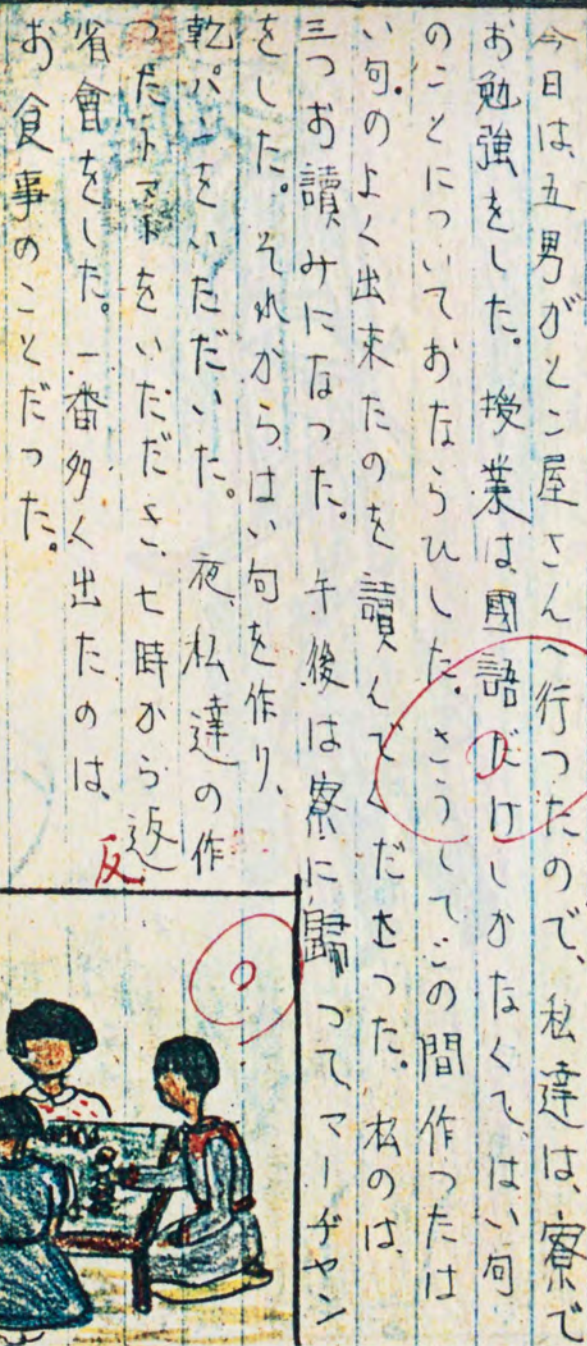 今日は、五男がとこ屋さんへ行つたので、私達は、寮で
お勉強をした。授業は、國語だけしかなくて、はい句
のことについておならひした。さうしてこの間作つたは
い句のよく出来たのを讀んでくださつた。私のは、
三つお讀みになつた。午後は寮に歸つて、マーヂヤン
をした。それからはい句を作り、
乾パンをいただいた。夜、私達の作
つたトマトをいただき、七時から返
省會をした。一番多く出たのは、
反
お食事のことだつた。